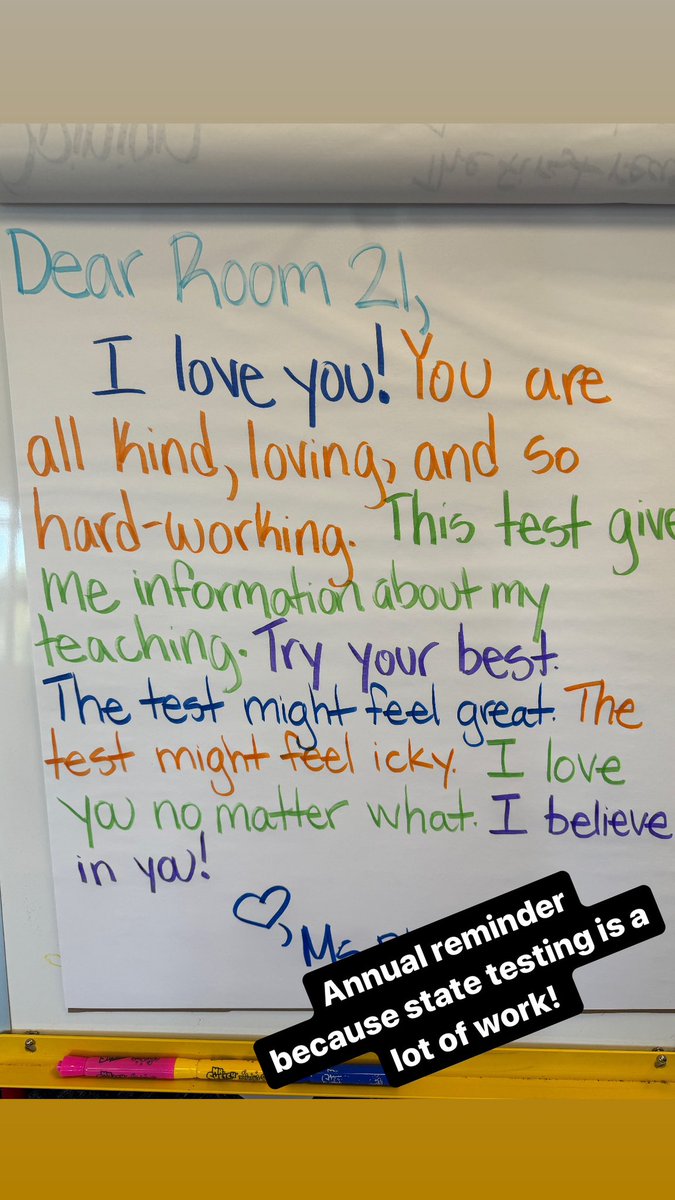 Dear Room 21,
I love you! You are
all kind, loving, and so
hard-working. This test give
me information about my
teaching. Try your best.
The test might feel great. The
test might feel icky. I love
you no matter what. I believe
in you!
Ms.
Annual reminder
because state testing is a
lot of work!